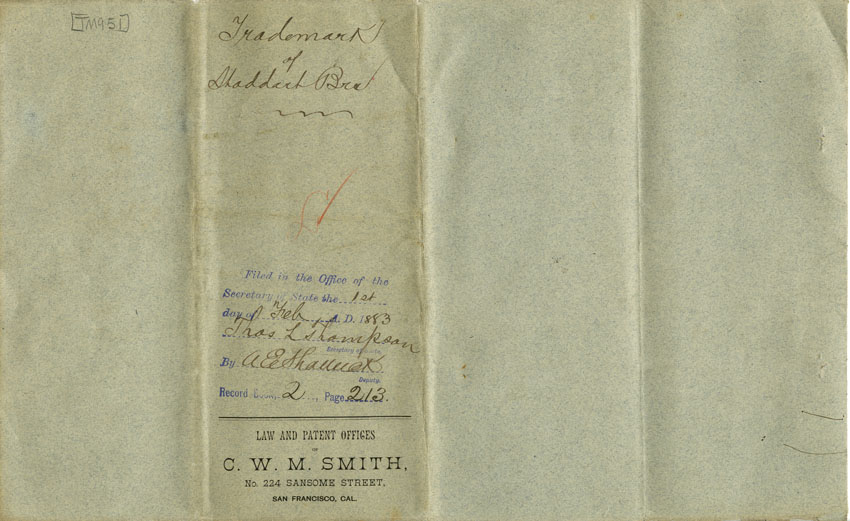 TM951
Trademark
of
Stoddart Bros
Filed in the Office of the
Secretary of State the 1st
day of Feb A. D. 1883
Thos L Thompson
Secretary of State.
By A E Shattuck
Deputy.
Record Book 2, Page 213.
LAW AND PATENT OFFICES
OF
C. W. M. SMITH,
No. 224 SANSOME STREET,
SAN FRANCISCO, CAL.